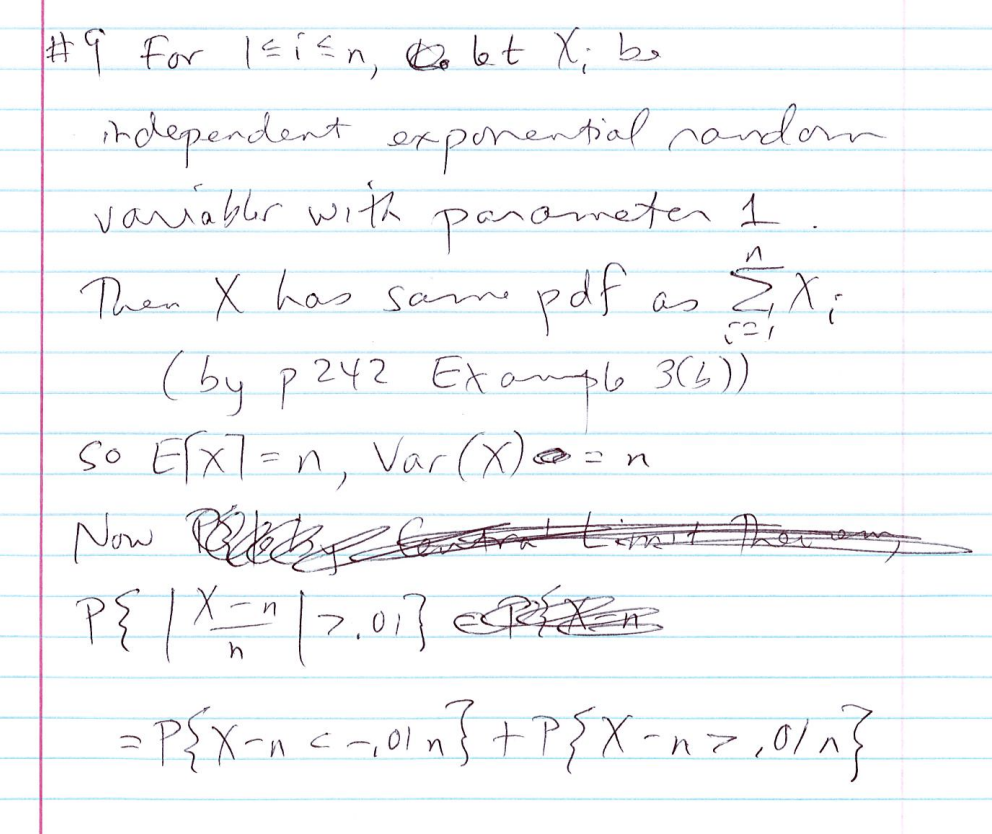 #9 For 1≤i≤n, let Xᵢ be
independent exponential random
variables with parameter 1.
Then X has same pdf as ∑ᵢ₌₁ⁿ Xᵢ
(by p242 Example 3(b))
so E[X] = n, Var(X) = n
Now Central Limit Theorem,
P{ |X-n / n| >.01}
= P{X-n < -.01n} + P{X-n > .01n}